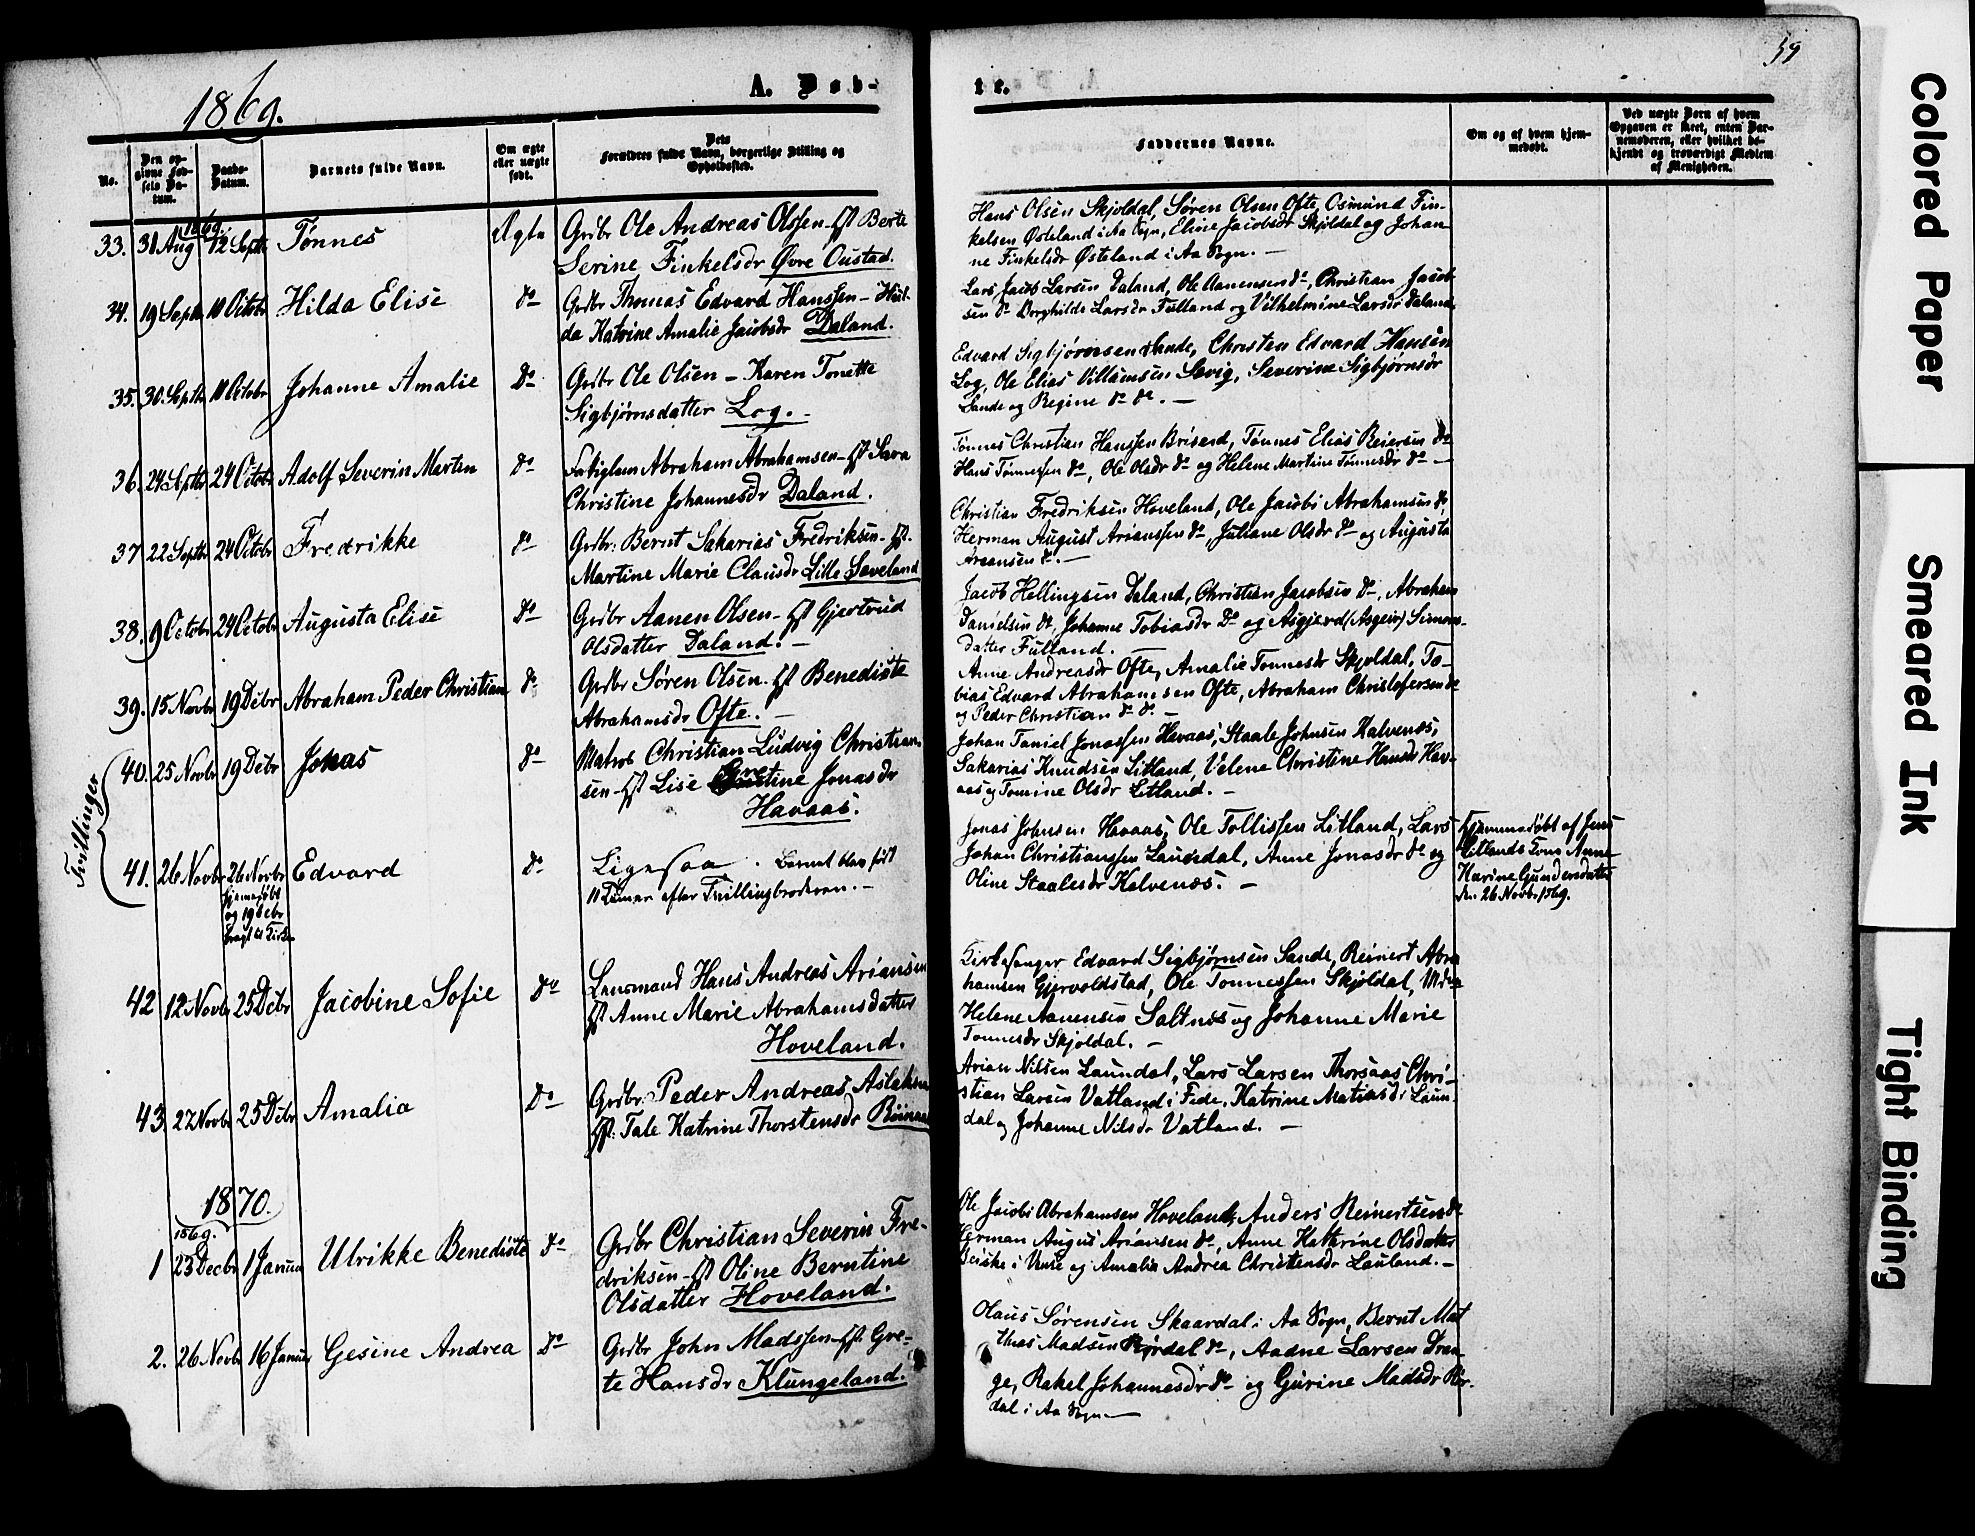 59
1869.
A. Døb-
te.
No.
Den op-
givne Fød-
sels Da-
tum.
Daabs-
Datum.
Barnets fulde Navn.
Om ægte
eller uægte
født.
Dets
Forældres fulde Navn, borgerlige Stilling og
Opholdssted.
Faddernes Navne.
Om og af hvem hjem-
medøbt.
Ved uægte Børn af hvem
Opgaven er skeet, enten Bar-
nemoderen, eller hvilket be-
kjendt og troværdigt Medlem
af Menigheden.
1869.
33. 31 Aug 12 Septbr Tønnes Ægte Grdbr Ole Andreas Olssen - Hst Berte
Serine Finkelsdr Øvre Oustad.
Hans Olsen Skjoldal, Søren Olsen Ofte, Osmund Fin-
kelsen Østeland i Aa Sogn, Eline Jacobsdr Skjoldal og Johan
ne Finkelsdr Østeland i Aa Sogn. -
34. 19 Septbr 10 Octobr Hilda Elise do Grdbr Thomas Edvard Hanssen - Hul-
da Katrine Amalie Jacobsdr Daland.
Lars Jacob Larsen Daland, Ole Aanensen do, Christian Jacob
sen do Borghilde Larsdr Fulland og Vilhelmine Larsdr Daland
35. 30. Septbr 10 Octobr Johanne Amalie Do Grdbr Ole Olsen - Karen Tonette
Sigbjørnsdatter Log. -
Edvard Sigbjørnsen Sande, Christen Edvard Hansen
Log, Ole Elias Villumsen Sevig, Severine Sigbjørnsdr
Sande og Regine do do. -
36. 24 Septbr 24 Octobr Adolf Severin Martin do Fatiglem Abraham Abrahamsen - Hst Sara
Christine Johannesdr Daland.
Tønnes Christian Hanssen Brisand, Tønnes Elias Reiersen do
Hans Tønnessen do, Ole Olsdr do og Helene Martine Tønnesdr do -
37 22 Septbr 24 Octobr Fredrikke do Grdbr: Bernt Sakarias Fredriksen - Hst.
Martine Marie Clausdr Lille Seveland
Christian Fredriksen Hoveland, Ole Jacobi Abrahamsen do,
Herman August Arianssen do, Juliane Olsdr do og Augusta
Ariansen do. -
38. 9 Octobr 24 Octobr Augusta Elise Do Grdbr Aanen Olsen - Hst Gjertrud
Olsdatter Daland. -
Jacob Hellingsen Daland, Christian Jacobsen Do, Abraham
Danielsen do, Johanne Tobiasdr Do og Asgjerd (Asgeir) Simons-
datter Fulland. -
39. 15 Novbr 19 Debr Abraham Peder Christian do Grdbr Søren Olsen - Hst Benedicte
Abrahamsdr Ofte. -
Anne Andreasdr Ofte, Amalie Tonnesdr Skjoldal, To-
bias Edvard Abrahamsen Ofte, Abraham Christofersen do
og Peder Christian do do. -
Tvillinger
40. 25 Novbr 19 Debr Jonas do Matros Christian Ludvig Christian-
sen - Hst Lise Gretine Jonasdr
Havaas.
Johan Daniel Jonassen Havaas, Staale Johnsen Kalvenæs,
Sakarias Knudsen Litland, Velene Christine Hansdr Hav-
aas og Tomine Olsdr Litland. -
41. 26 Novbr 26 Novbr Edvard do Ligesaa. Barnet blev født
hjemmedøbt
og 19 Debr
bragt til Kirke
11 Timer efter Tvillingbroderen. -
Jonas Johnsen Havaas, Ole Tollissen Litland, Lars
Johan Christianssen Laundal, Anne Jonasdr do og
Oline Staalesdr Kalvenæs. -
Hjemmedøbt af Jens
Litlands Kone Anne
Karine Gundersdatter
den 26 Novbr 1869.
42 12 Novbr 25 Debr Jacobine Sofie do Lensmand Hans Andreas Ariansen
Hst Anne Marie Abrahamsdatter
Hoveland.
Kirkesanger Edvard Sigbjørnsen Sande, Reinert Abra
hamsen Gjervoldstad, Ole Tonnessen Skjoldal, Mdm
Helene Aanensen Saltnes og Johanne Marie
Tonnesdr Skjoldal. -
43. 27 Novbr 25 Debr Amalia Do Grdbr. Peder Andreas Aslaksen
Hst: Tale Katrine Thorstensdr
Arian Nilsen Laundal, Lars Larsen Thorsaas Chri-
stian Larsen Vatland i Fede, Katrine Matiasdr Laun-
dal og Johanne Nilsdr Vatland. -
1870.
1869.
1 23 Decbr 1 Januar Ulrikke Benedicte Do Grdbr Christian Severin Fre-
driksen - Hst Oline Berntine
Olsdatter Hoveland.
Ole Jacobi Abrahamsen Hoveland, Anders Reinertsen do
Herman August Ariansen do, Anne Kathrine Olsdatter
i Vanse og Amalia Andrea Christensdr Lauland. -
2. 26 Novbr 16 Januar Gesine Andrea Do Grdbr John Madssen - Hst. Gre-
te Hansdr Klungeland.
Olaus Sørensen Skaardal i Aa Sogn, Bernt Mat
thias Madsen Rørdal do, Aadne Larsen Dran-
ge, Rakel Johannesdr do og Gurine Madsdr Rør-
dal i Aa Sogn -
Colored Paper
Smeared Ink
Tight Binding